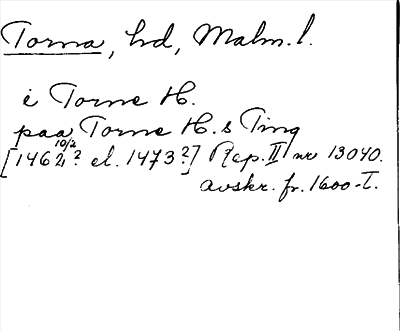 Torna, hd, Malm.l.
i Torne H.
paa Torne H.s Ting
10/2
[1462? el. 1473?] Rep. II nr 13040.
avskr. fr. 1600-T.